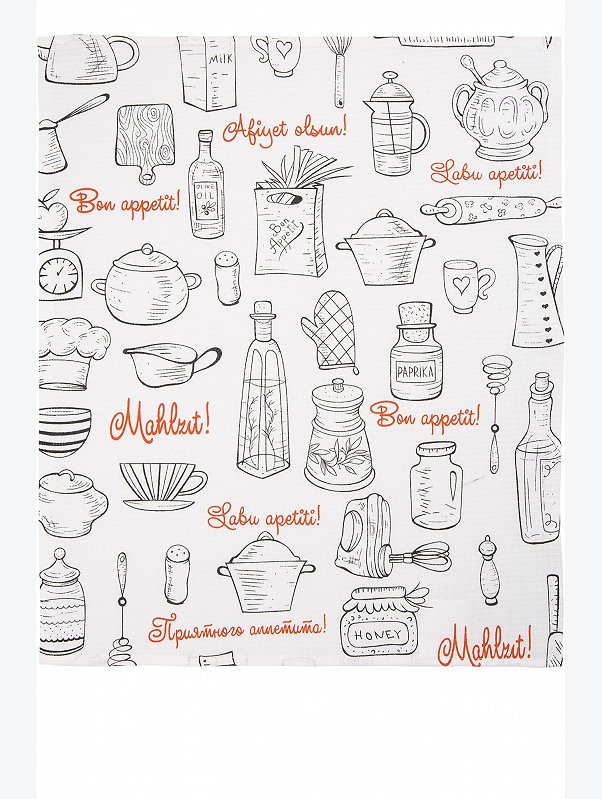 MILK
Afiyet olsun!
Labu apetiti!
Bon appetit!
OLIVE
OIL
Bon
Appetit
PAPRIKA
Mahlzıt!
Bon appetit!
Labu apetiti!
Приятного аппетита!
HONEY
Mahlzıt!